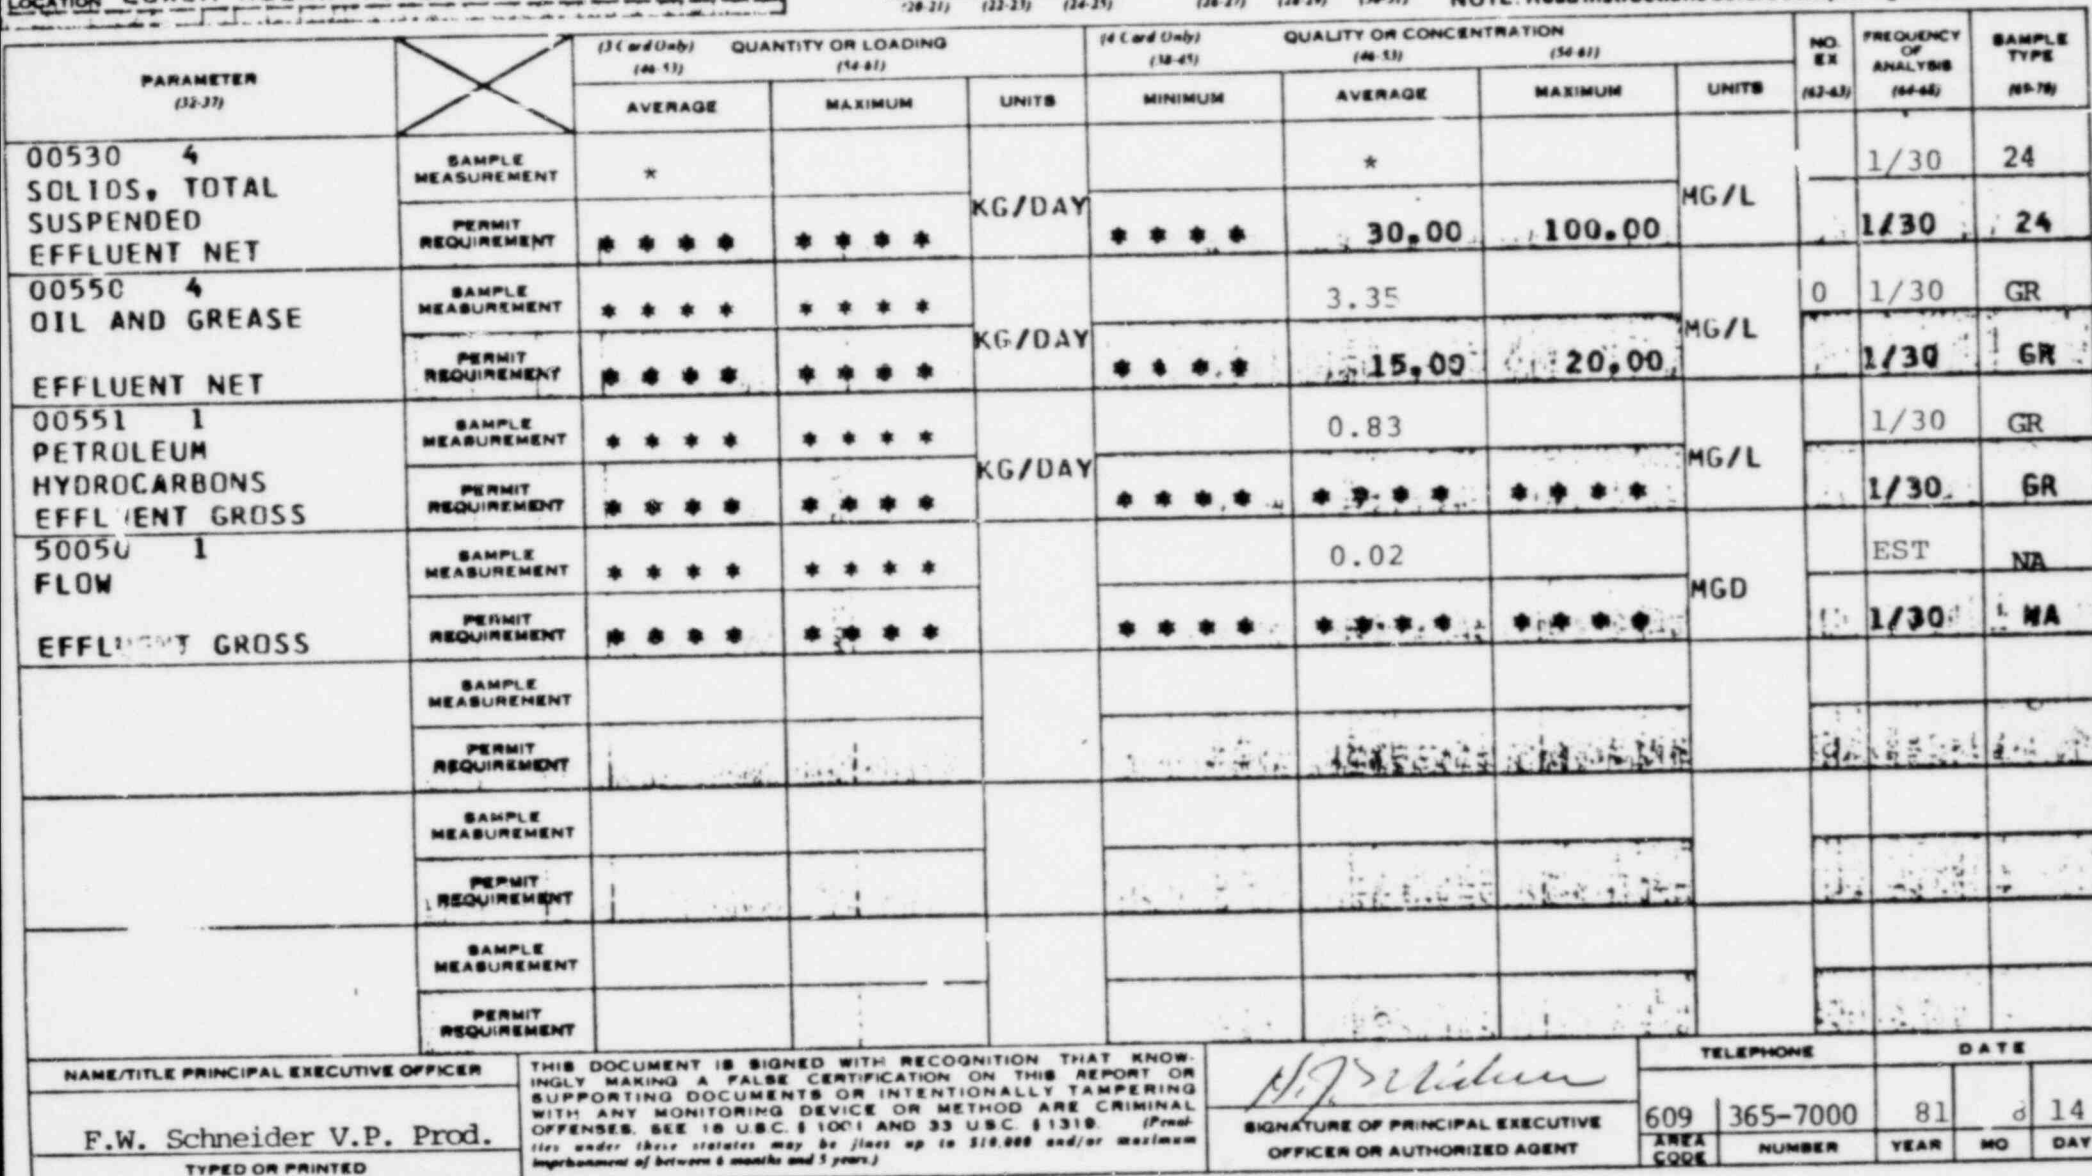 LOCATION
(20-21) (22-23) (24-25) (26-27) (28-29) (30-31)
PARAMETER
(32-37)
(3 Card Only) QUANTITY OR LOADING
(46-53) (54-61)
AVERAGE MAXIMUM UNITS
(4 Card Only) QUALITY OR CONCENTRATION
(38-45) (46-53) (54-61)
MINIMUM AVERAGE MAXIMUM UNITS
NO. EX (62-63)
FREQUENCY OF ANALYSIS (64-68)
SAMPLE TYPE (69-70)
00530 4
SOLIDS, TOTAL
SUSPENDED
EFFLUENT NET
SAMPLE MEASUREMENT * * 1/30 24
KG/DAY MG/L
PERMIT REQUIREMENT * * * * * * * * * * * * 30.00 100.00 1/30 24
00550 4
OIL AND GREASE
EFFLUENT NET
SAMPLE MEASUREMENT * * * * * * * * 3.35 0 1/30 GR
KG/DAY MG/L
PERMIT REQUIREMENT * * * * * * * * * * * * 15.00 20.00 1/30 GR
00551 1
PETROLEUM
HYDROCARBONS
EFFL ENT GROSS
SAMPLE MEASUREMENT * * * * * * * * 0.83 1/30 GR
KG/DAY MG/L
PERMIT REQUIREMENT * * * * * * * * * * * * * * * * * * * * 1/30 GR
50050 1
FLOW
GROSS
SAMPLE MEASUREMENT * * * * * * * * 0.02 EST NA
MGD
PERMIT REQUIREMENT * * * * * * * * * * * * * * * * * * * * 1/30 NA
SAMPLE MEASUREMENT
PERMIT REQUIREMENT
SAMPLE MEASUREMENT
PERMIT REQUIREMENT
SAMPLE MEASUREMENT
PERMIT REQUIREMENT
NAME/TITLE PRINCIPAL EXECUTIVE OFFICER
F.W. Schneider V.P. Prod.
TYPED OR PRINTED
THIS DOCUMENT IS SIGNED WITH RECOGNITION THAT KNOW-
INGLY MAKING A FALSE CERTIFICATION ON THIS REPORT OR
SUPPORTING DOCUMENTS OR INTENTIONALLY TAMPERING
WITH ANY MONITORING DEVICE OR METHOD ARE CRIMINAL
OFFENSES. SEE 18 U.S.C. § 1001 AND 33 U.S.C. § 1319. (Penal-
ties under these statutes may be fines up to $10,000 and/or maximum
imprisonment of between 6 months and 5 years.)
SIGNATURE OF PRINCIPAL EXECUTIVE
OFFICER OR AUTHORIZED AGENT
TELEPHONE DATE
609 365-7000 81 14
AREA CODE NUMBER YEAR MO DAY